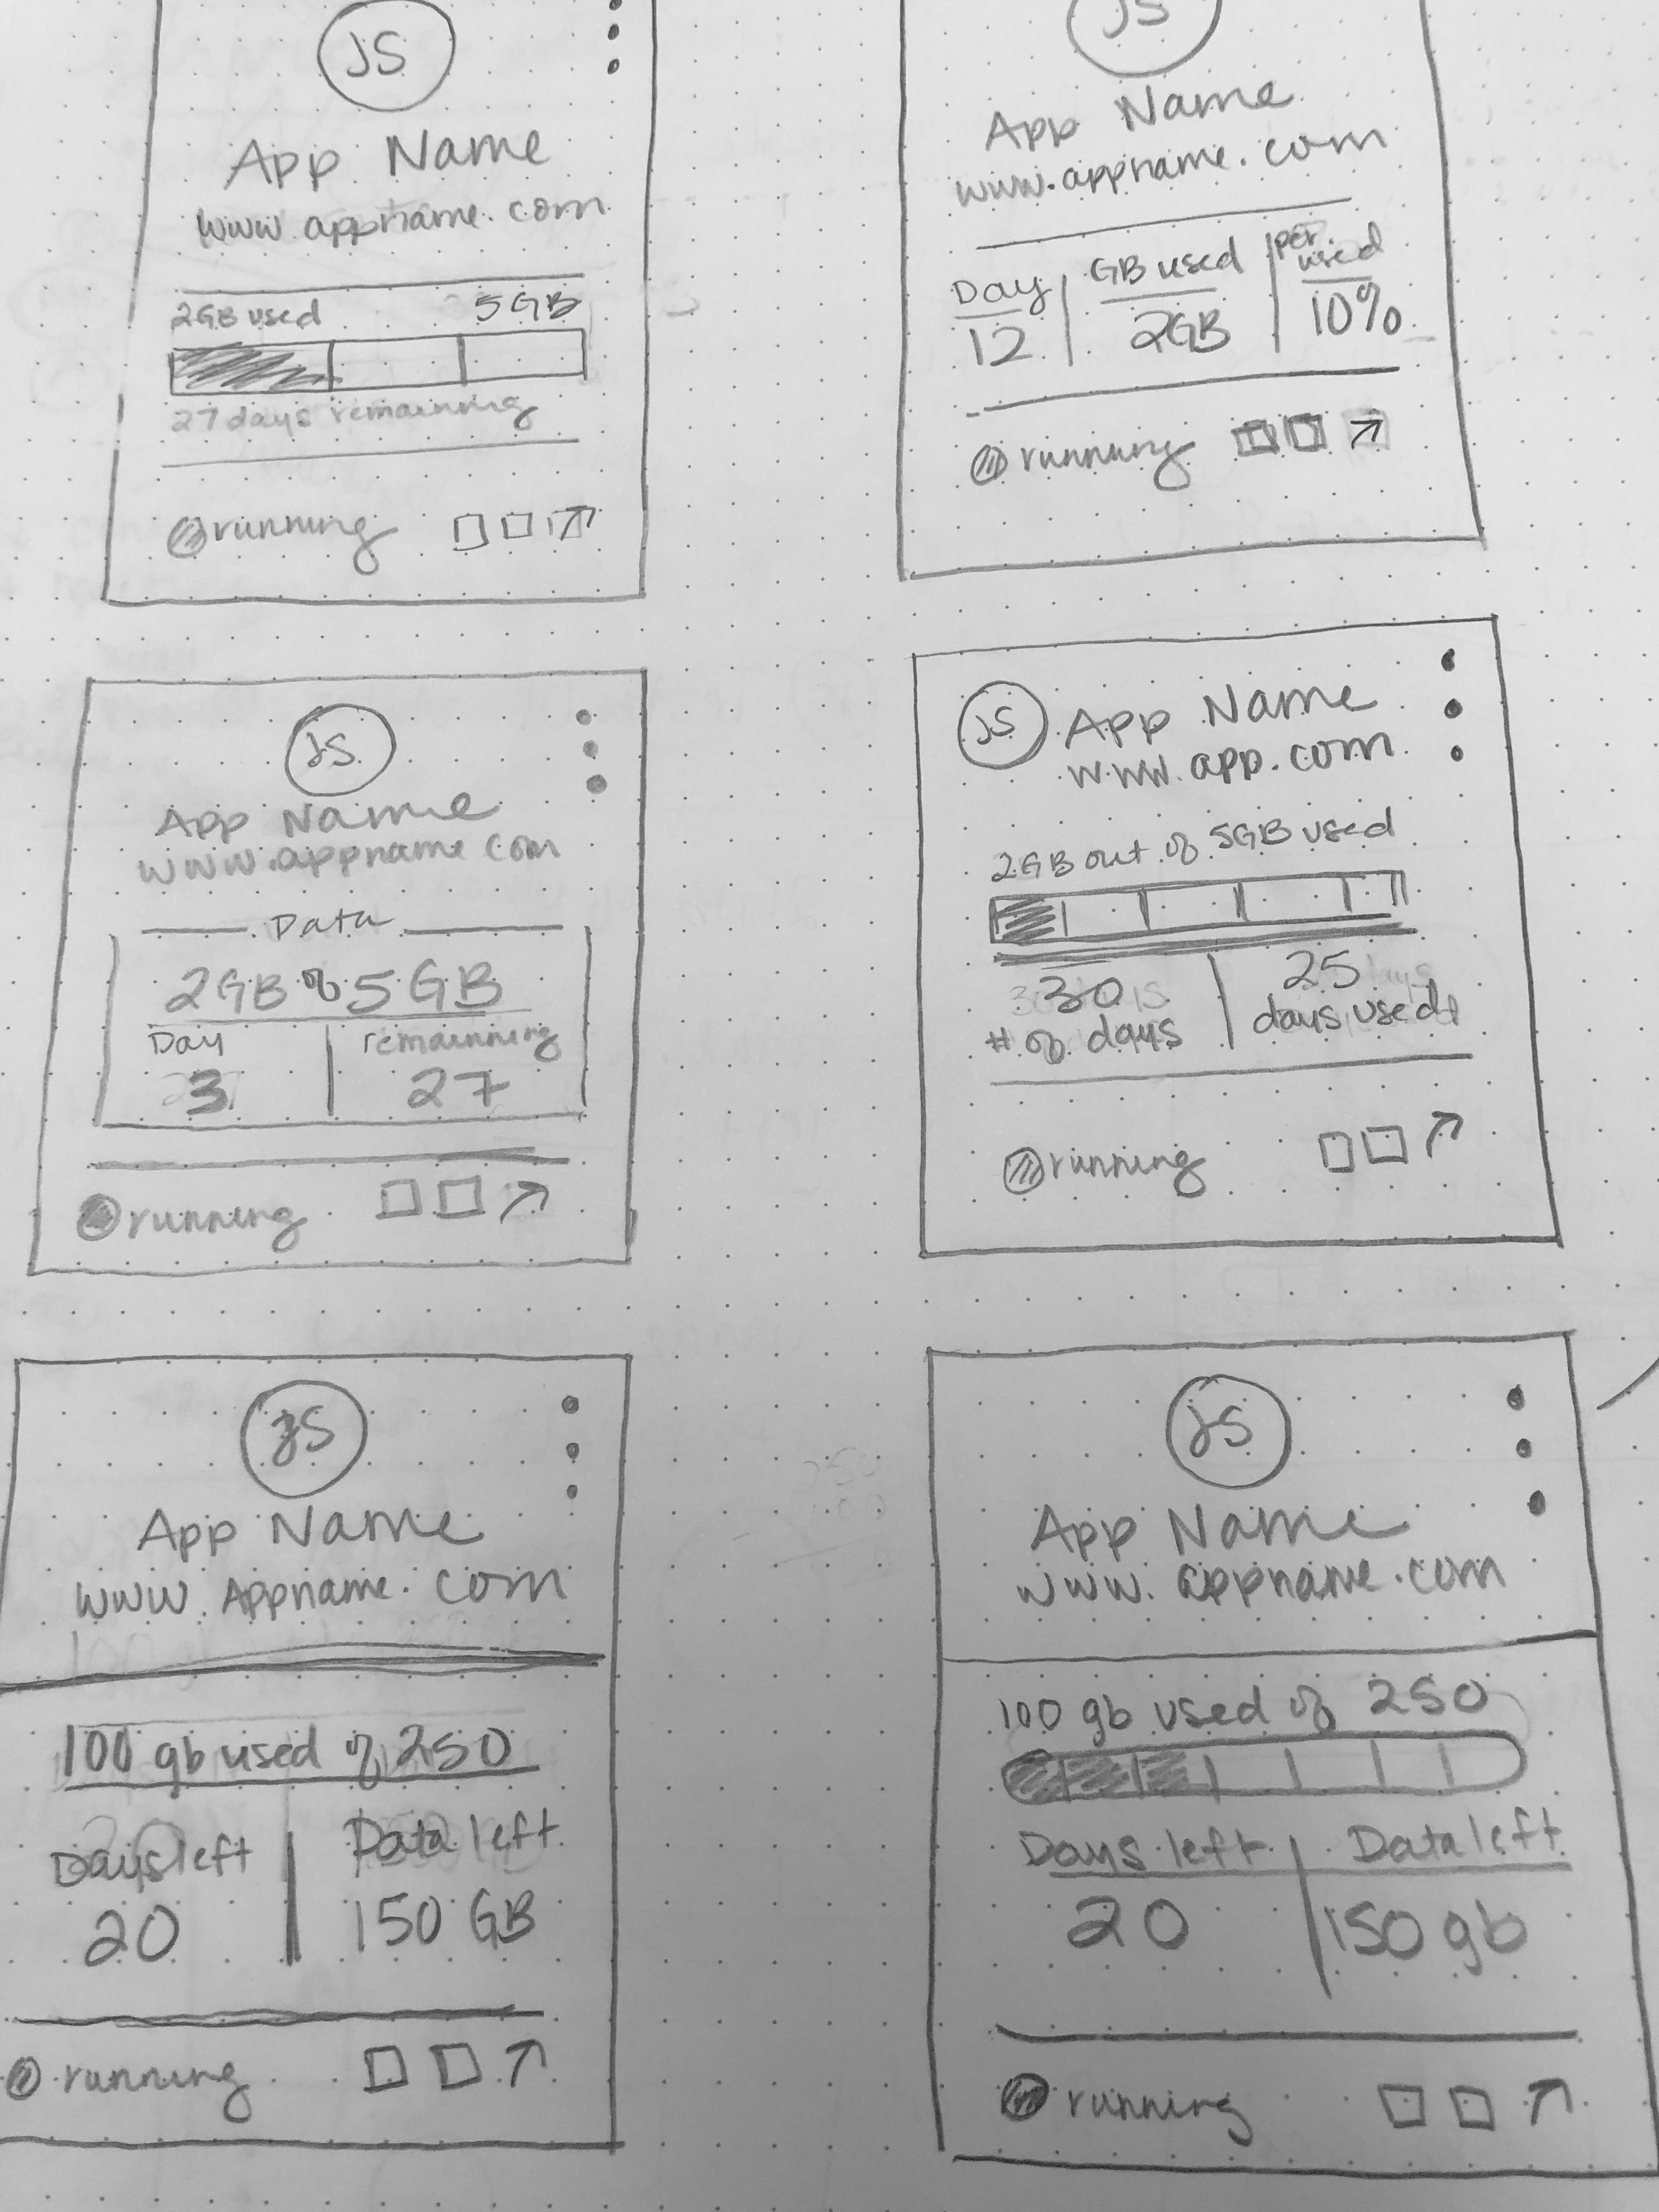 JS
App Name
www.appname.com
2GB used 5GB
27 days remaining
running
JS
App Name
www.appname.com
Day GB used per. used
12 2GB 10%
running
JS
App Name
www.appname com
Data
2GB of 5GB
Day remainning
3 27
running
JS App Name
www.app.com
2GB out of 5GB used
30 25
# of days days used
running
JS
App Name
www.Appname.com
100 gb used of 250
Days left Data left
20 150 GB
running
JS
App Name
www.appname.com
100 gb used of 250
Days left Data left
20 150 gb
running